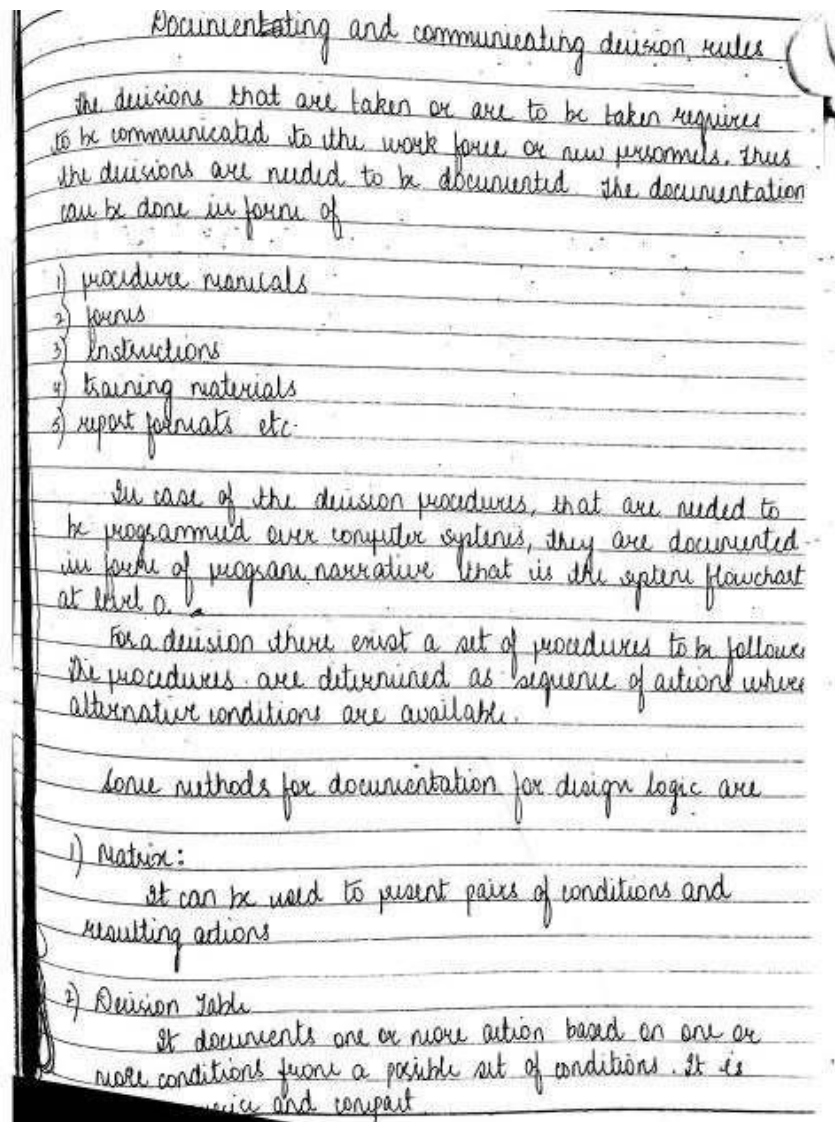 Documentating and communicating decision rules
The decisions that are taken or are to be taken requires
to be communicated to the work force or new personnels. Thus
the decisions are needed to be documented. The documentation
can be done in form of
1) procedure manuals
2) forms
3) Instructions
4) training materials
5) report formats etc.
In case of the decision procedures, that are needed to
be programmed over computer systems, they are documented
in form of program narrative that is the system flowchart
at level 0.
For a decision there exist a set of procedures to be
The procedures are determined as sequence of actions where
alternative conditions are available.
Some methods for documentation for design logic are
1) Matrix:
It can be used to present pairs of conditions and
resulting actions
2) Decision Table
It documents one or more action based on one or
more conditions from a possible set of conditions. It is
and compact